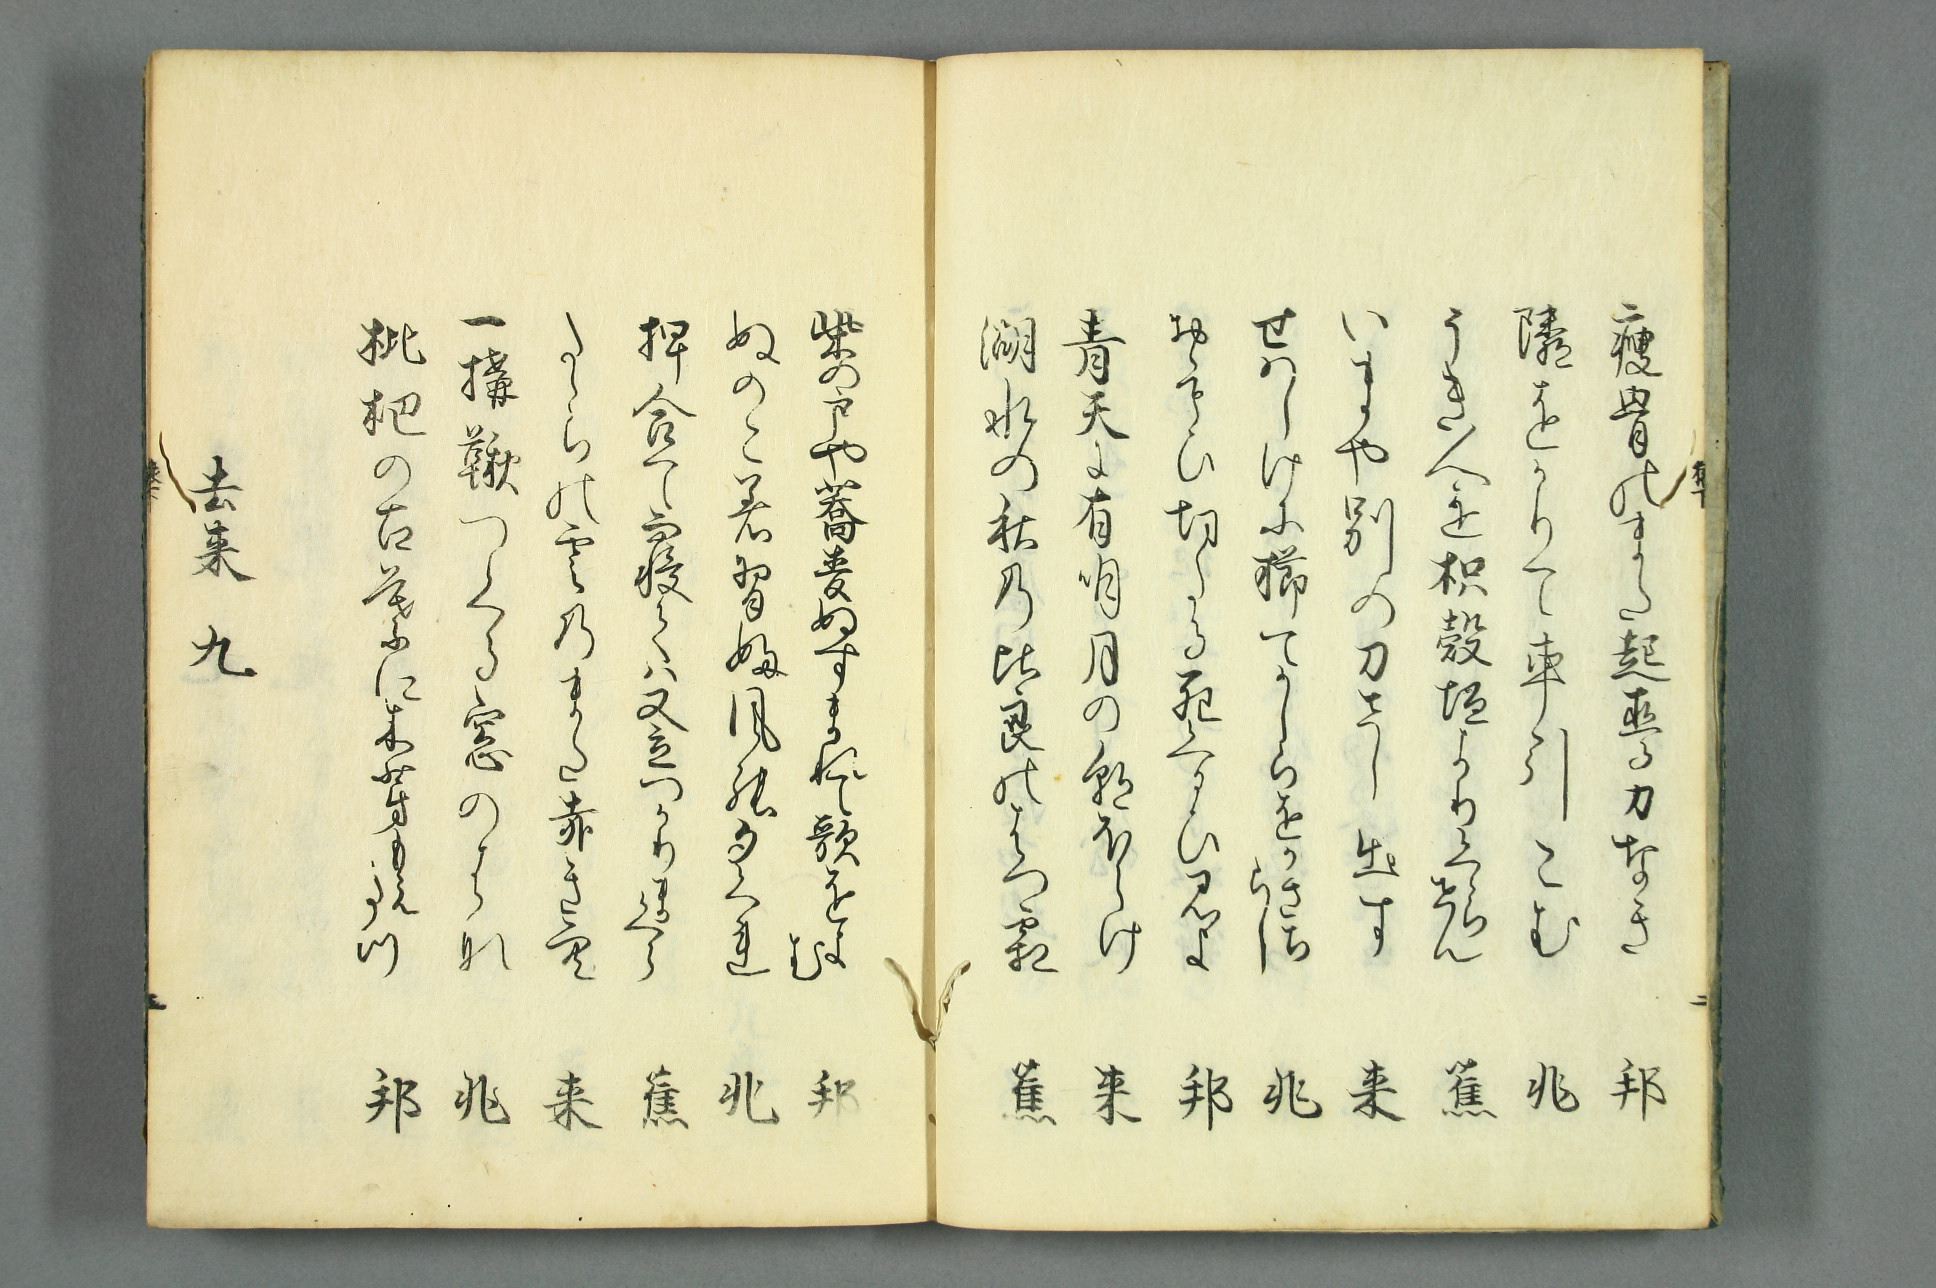 痩骨のまた起直る力なき　邦
隣をかりて車引こむ　兆
うき人を枳穀垣よりくゝらせん　蕉
いまや別の刀さし出す　来
せはしけに櫛てかしらをかきちらし　兆
おもひ切たる死くるひ見よ　邦
青天に有明月の朝ほらけ　来
湖水の秋の比良のはつ霜　蕉
柴の戸や蕎麦ぬすまれて歌をよむ　邦
ぬのこ着習ふ風の夕くれ　兆
押合て寝ては又立つかりまくら　蕉
たゝらの雲のまた赤き空　来
一構鞦つくる窓のはな　兆
枇杷の古葉に木芽もえたつ　邦
去来　九